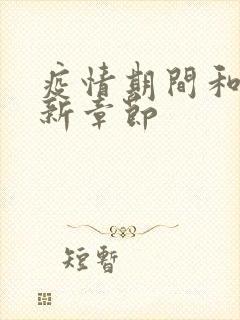 疫情期間和
新章節
短暫